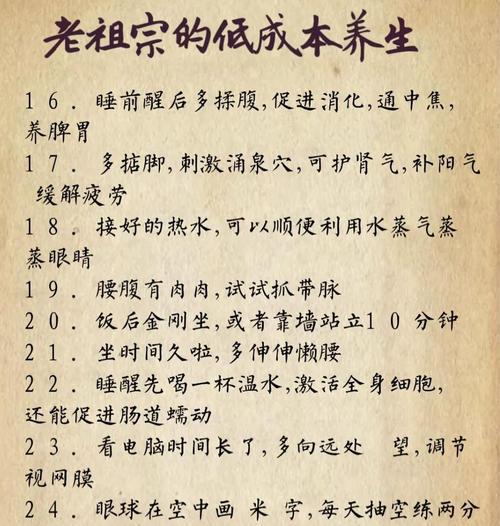 老祖宗的低成本养生
16. 睡前醒后多揉腹,促进消化,通中焦,
养脾胃
17. 多掂脚,刺激涌泉穴,可护肾气,补阳气
缓解疲劳
18. 接好的热水,可以顺便利用水蒸气蒸
蒸眼睛
19. 腰腹有肉肉,试试抓带脉
20. 饭后金刚坐,或者靠墙站立10分钟
21. 坐时间久啦,多伸伸懒腰
22. 睡醒先喝一杯温水,激活全身细胞,
还能促进肠道蠕动
23. 看电脑时间长了,多向远处 望,调节
视网膜
24. 眼球在空中画 米 字,每天抽空练两分